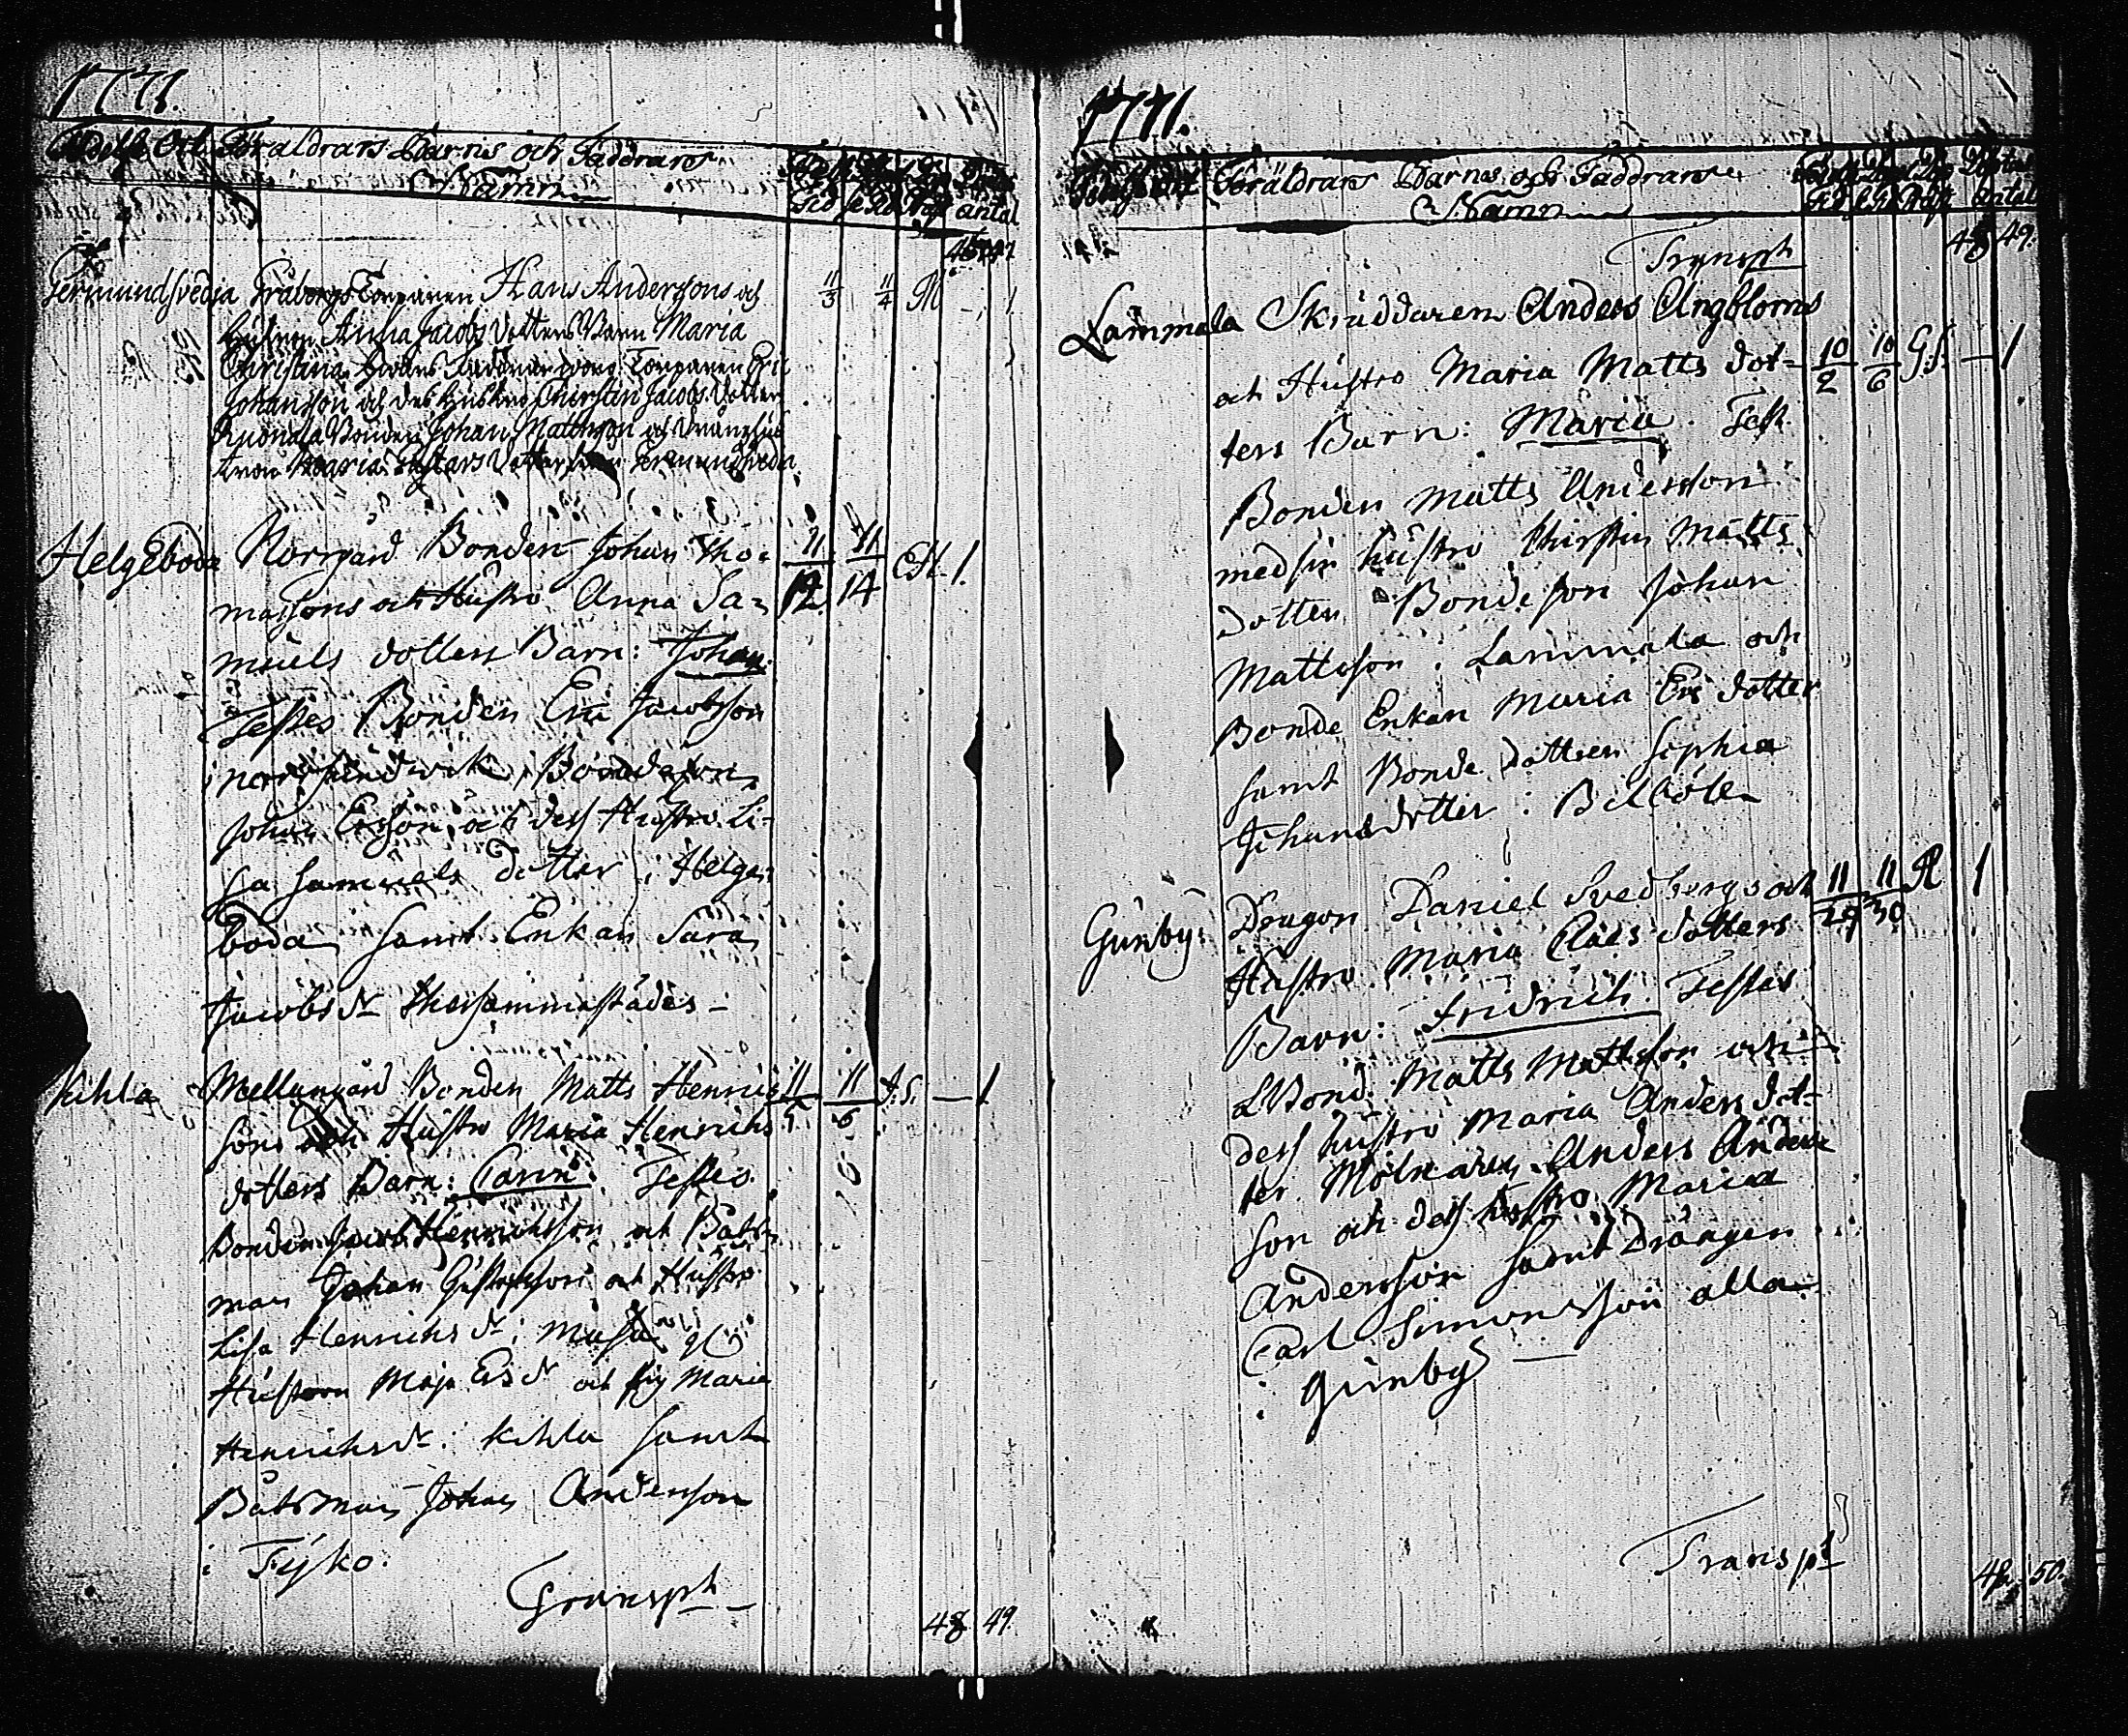 1771.
Föräldrars Barns och Faddrars
Namn
antal
Germundsvedja Torparen Hans Anderssons och
Hustrun Anna Jacobs dotters Barn Maria
Christina Torparen Eric
Johansson och des Hustru Thirstin Jacobs dotter
Bonden Johan Mattsson
Maria Gustavs dotter Germundsveda
11/3 11/4 M 1
Helgeboda Norrgård Bonden Johan Tho-
massons och Hustro Anna Sa-
muels dotters Barn: Johan.
Testes Bonden Eric Jacobsson
i Bondeson
Johan Ersson och dess Hustro Li-
sa Samuels dotter i Helge-
boda samt Enkan Sara
Jacobs dr thersammastädes
11/12 11/14 1.
Kihla Mellangård Bonden Matts Henric
sons och Hustro Maria Henrichs
dotters Barn: Carin. Testes
Bonden Jacob Henrichsson och Båts-
man Johan Gustafsson och Hustro
Lisa Henrichs dr i
Hustrun Maja Ers dr och pig Maria
Henrichs dr i Kihla samt
Båtsman Johan Andersson
i Tyko.
11/5 11/6 J.S. — 1
Transpt
48 49.
1771.
Föräldrars Barnas och Faddrars
Namn
antal
Transpt
48 49.
Lammala Skräddaren Anders Ängbloms
och Hustro Maria Matts dot-
ters Barn: Maria. Test.
Bonden Matts Andersson
med sin hustro Thirstin Matts
dotter Bondeson Johan
Mattsson i Lammala och
Bonde Enkan Maria Ers dotter
samt Bonde dottren Sophia
Johansdotter i Bilböle
10/2 10/6 G.S. — 1
Ginby: Dragon Daniel Svedbergs och
Hustro Maria Claes dotters
Barn: Fridrich. Testes
Bond. Matts Mattsson och
dess hustro Maria Anders dot-
ter Mölnaren Anders Anders
son och dess hustro Maria
Andersson samt Drängen
Carl Simonsson alla
i Ginby
11/29 11/30 1
Transpt
50.